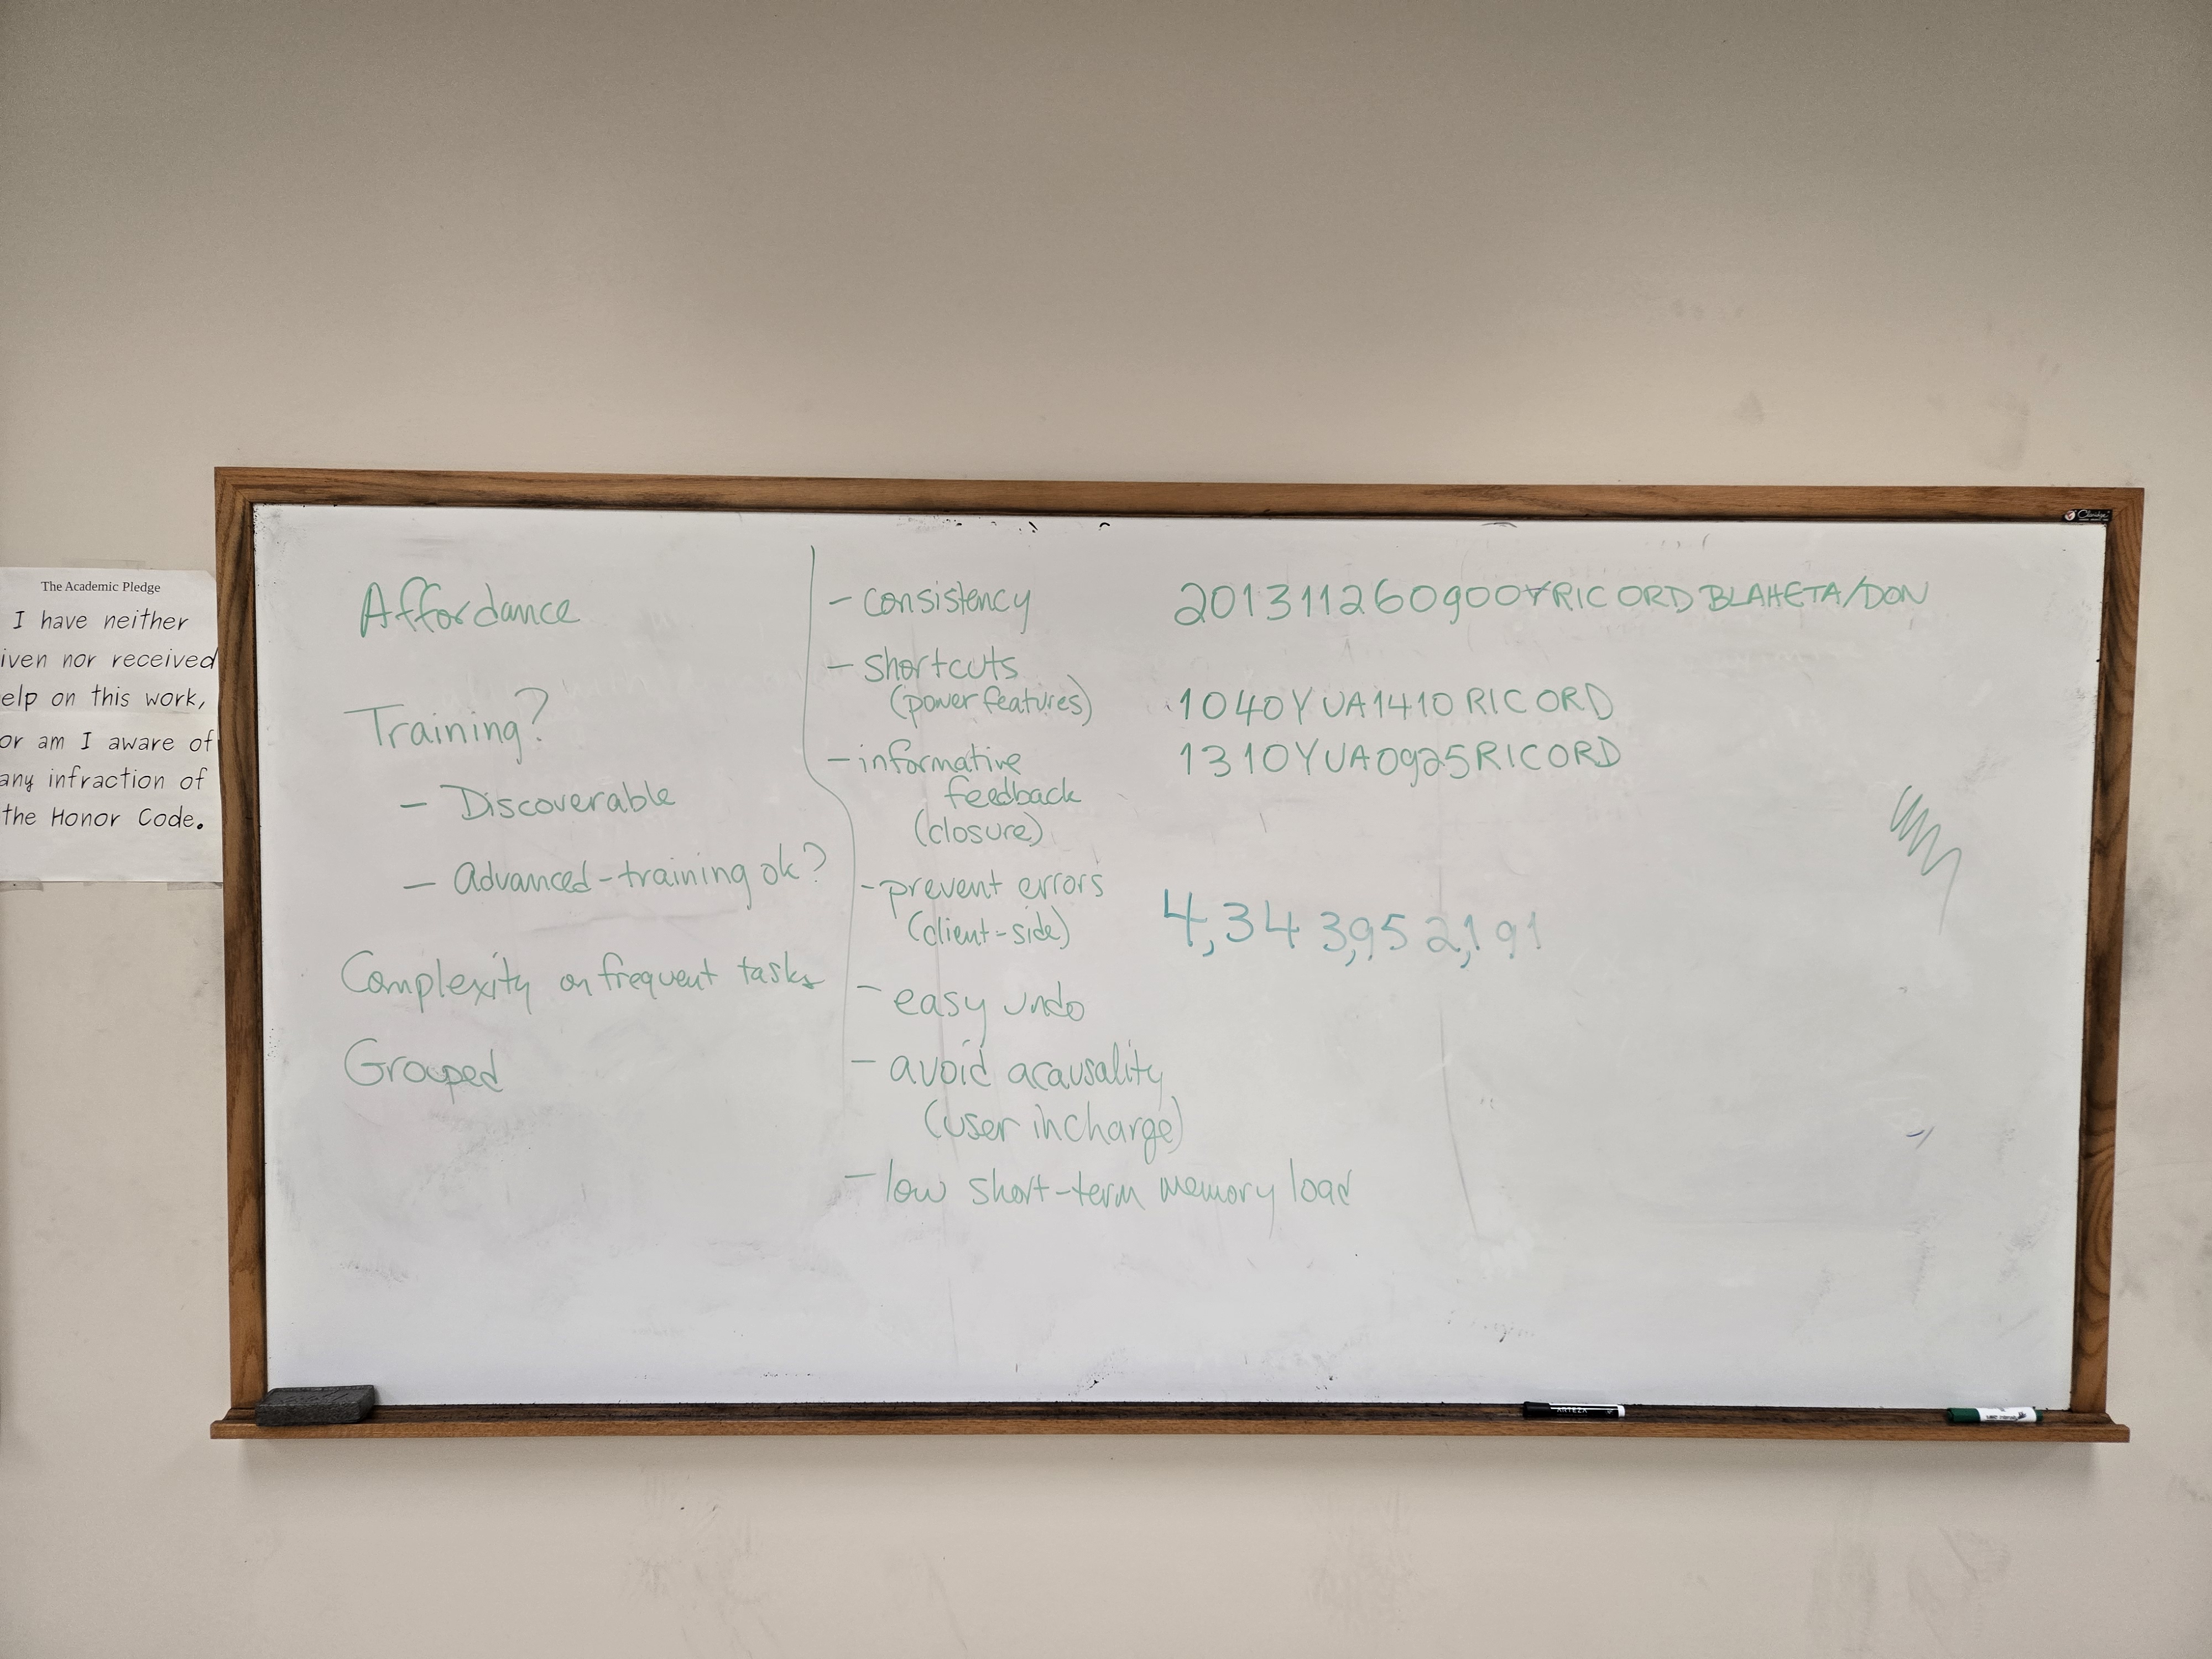 The Academic Pledge
I have neither
iven nor received
elp on this work,
or am I aware of
any infraction of
the Honor Code.
Affordance
Training?
– Discoverable
– Advanced-training ok?
Complexity on frequent tasks
Grouped
– consistency
– shortcuts
(power features)
– informative
feedback
(closure)
- prevent errors
(client-side)
– easy undo
– avoid acausality
(user in charge)
– low short-term memory load
201311260900YRIC ORD BLAHETA/DON
1040YUA1410RIC ORD
1310YUA0925RICORD
4,34 3,95 2,1 91
ARTEZA